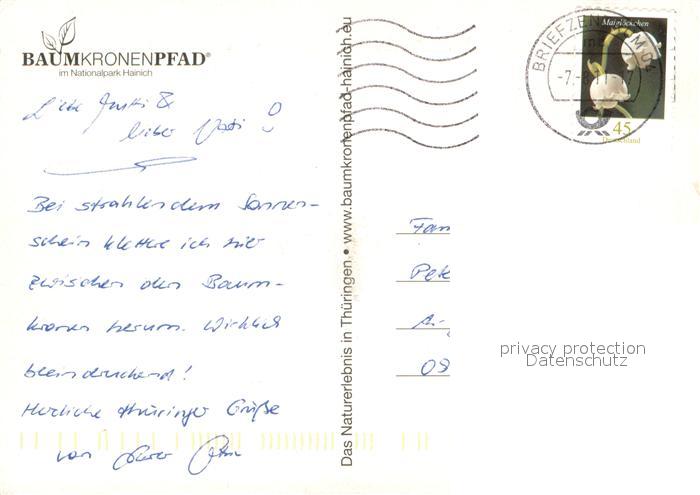 BAUMKRONENPFAD®
im Nationalpark Hainich
Liebe &
lieber !
Bei strahlendem Sonnen-
schein klettre ich hier
zwischen den Baum-
kronen herum. Wirklich
beeindruckend!
Herzliche thüringer Grüße
von
Das Naturerlebnis in Thüringen • www.baumkronenpfad-hainich.eu
Maiglöckchen
BRIEFZEN
45
Deutschland
Fam
Pete
08
privacy protection
Datenschutz